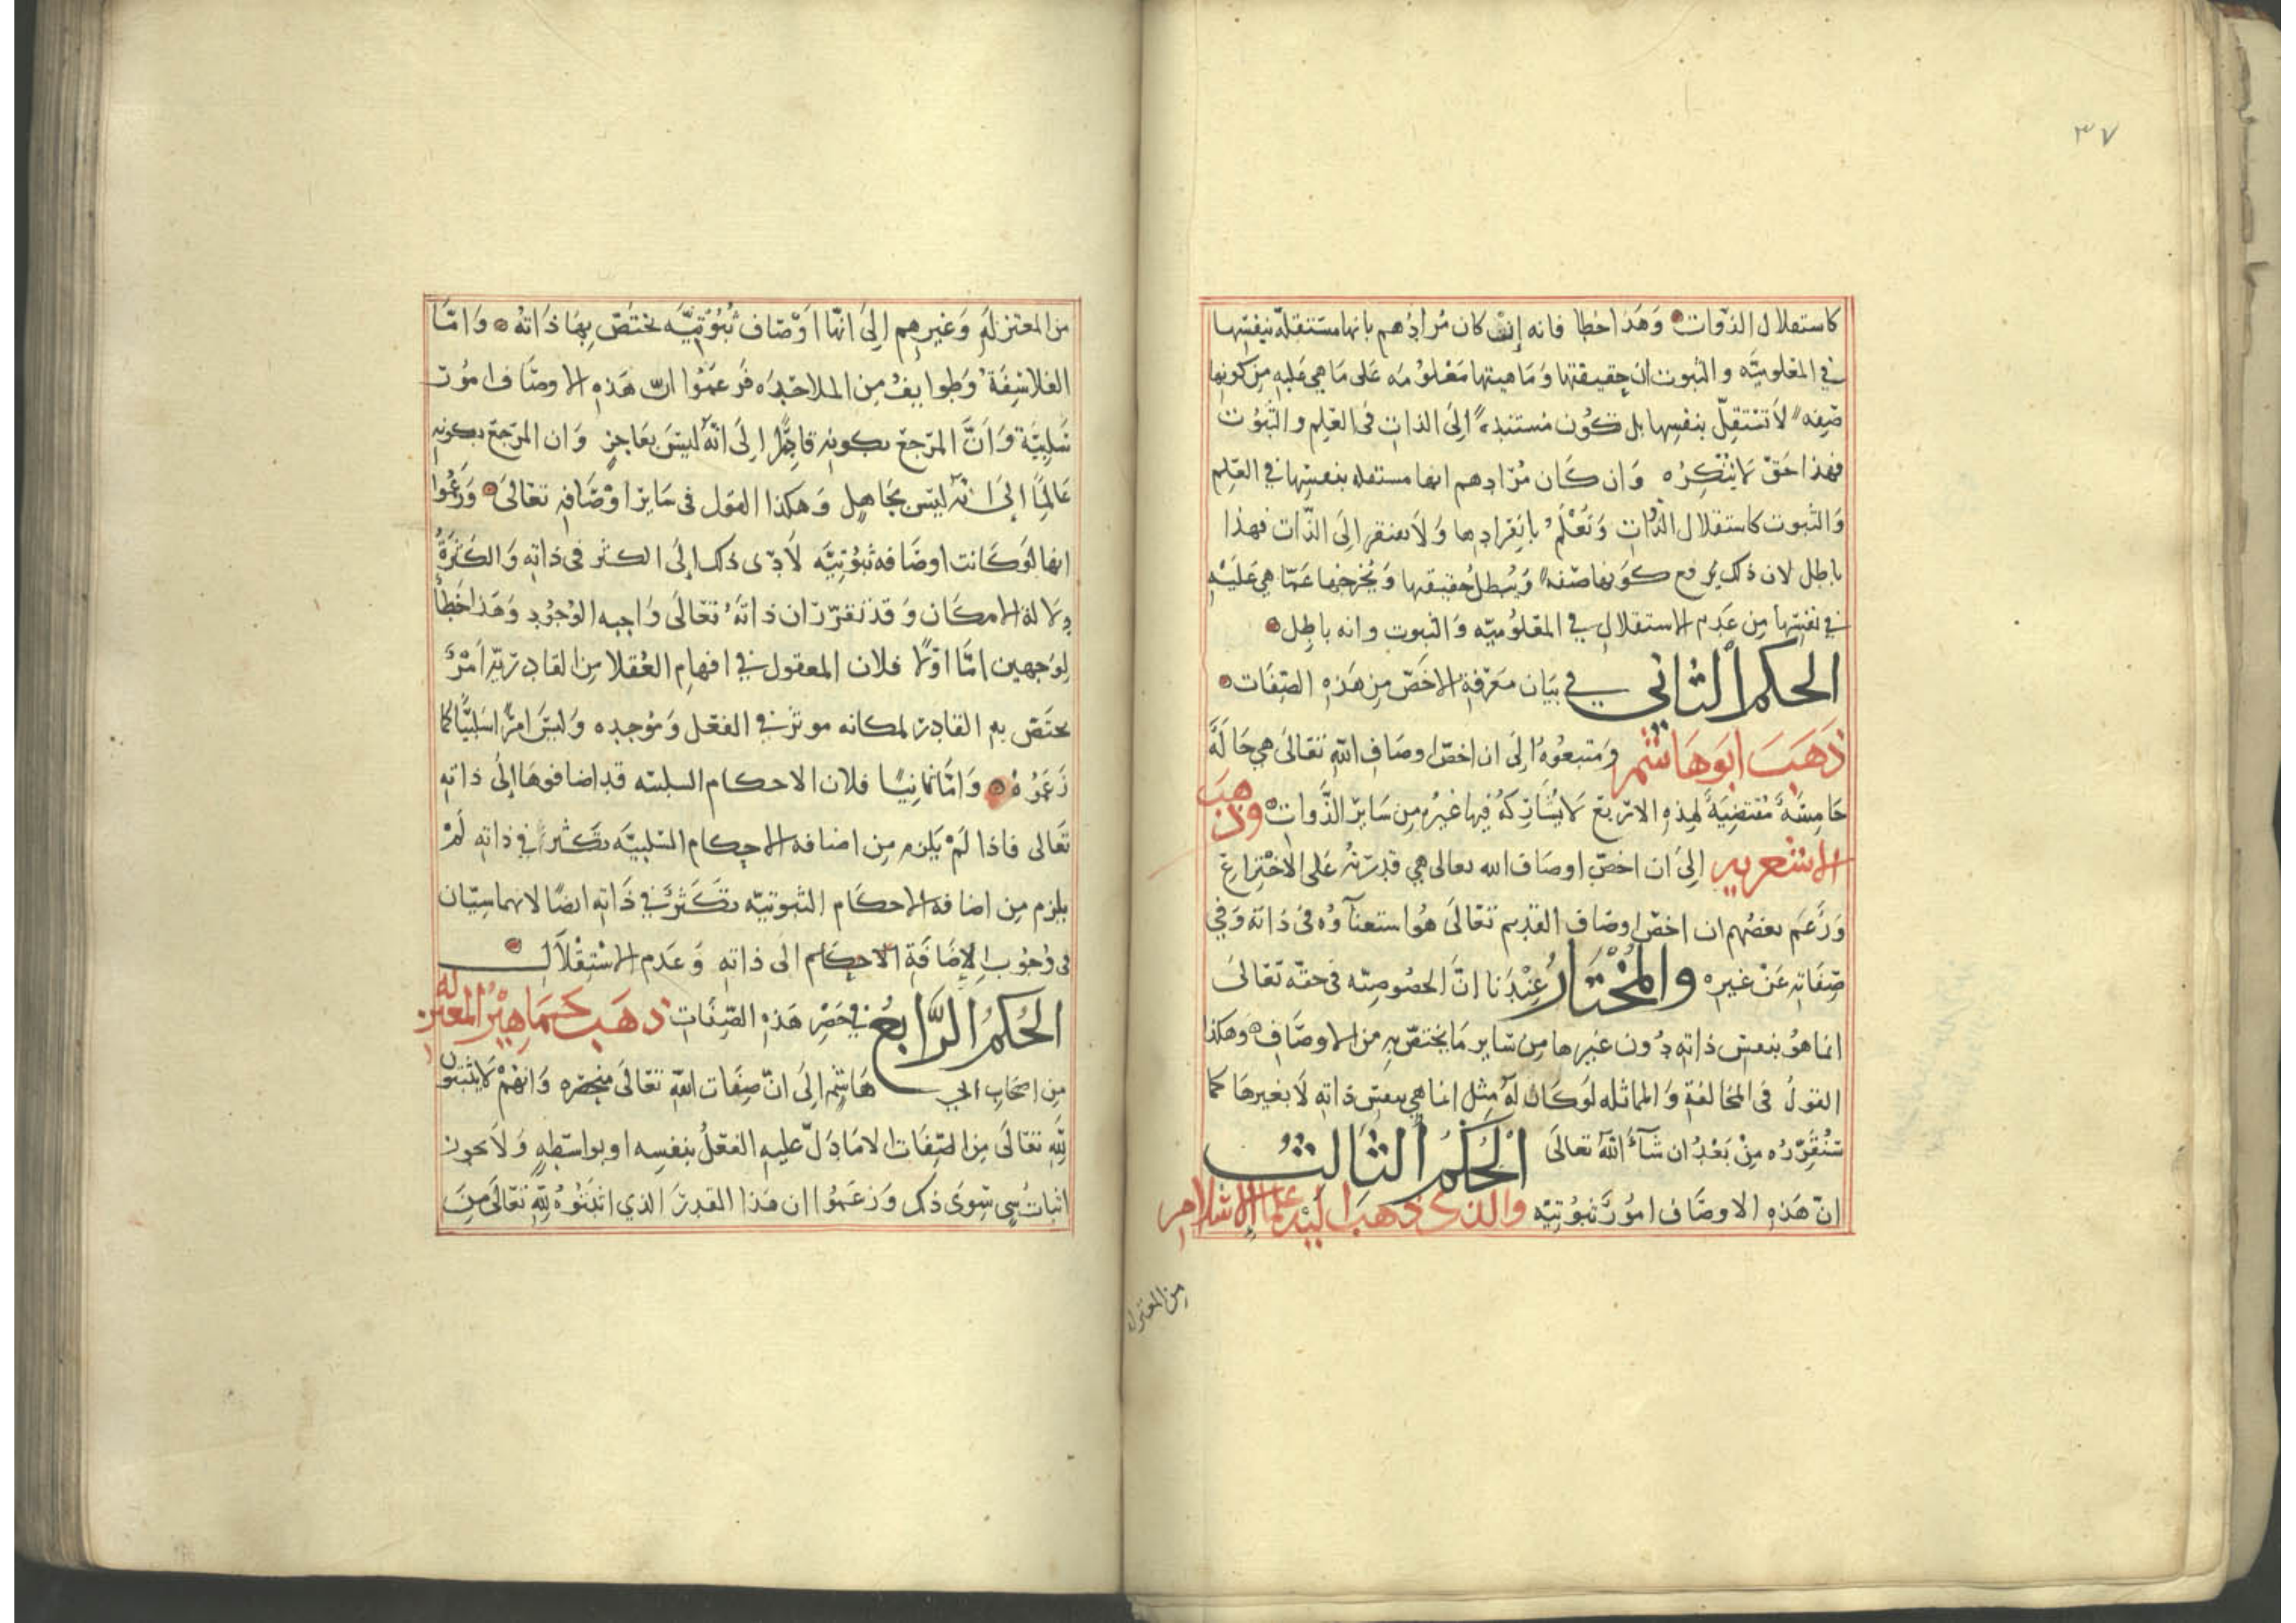 ٣٧
كاستقلال الذوات وَهَذا خطا فانه إن كان مُرادُهم بانها مستنقلة بنفسها
في المعلوميّه والثبوت ان حقيقتها وَمَاهيتها مَعْلوُمَه عَلى مَا هي عَليه من كونها
صِفه لاَ تسْتقِلّ بنفسِها بل تكوُن مُستندةً إلَى الذات فى العِلم والثبوُت
فهذا حَقٌ لا ننكِرُه وَان كَان مُرَادهم انها مستقله بنفسِها في العِلم
وَالثبوت كاستقلال الذوات وَتَعْلمُ بانفرادِها وَلاَ تفتقر إلَى الذّات فهذا
باطل لان ذلك يرفع كوَنها صفه وَيُبطل حُقيقتها وَيُخرجُها عَمّا هِيَ عَليْهِ
في نفسِها مِن عَدم الاستقلالِ في المعْلوُميّه وَالثبوت وانه باطِل
الحكم الثاني في بَيان مَعَرفة الاخَصّ مِن هَذهِ الصّفَات
ذَهَبَ ابَوهَاشم وَمتبعُوهُ إلَى ان اخصّ اوصَافِ اللهِ تعَالَى هي حَالَةٌ
خَامِسَةٌ مُقتضِيَةٌ لهذِهِ الاربَع لا يُشَاركهُ فِيها غيرُه مِن سَايرِ الذَّوات وذهبَ
الاشعريه إلَىَ ان اخصّ اوصَاف الله تعالى هي قدِرتهُ عَلى الاخْتِراع
وَزَعَم بعَضُهم ان اخصّ اوصَاف القدِيم تعَالَى هُو استغنآوُه فى ذاته وَفي
صِفَاتِه عَنْ غيرِه والمُخْتَارُ عِنْدَنا انَّ الخصُوصِيّه فى حقّه تعَالىَ
انما هوُ بنفسِ ذاتهِ دُون غيرها مِن سَاير مَا يختصّ بهِ من الاوصَافِ وَهكذا
القولُ فى المخَالفةِ وَالماثله لوَكَان لهُ مِثل انما هي بنفسِ ذاتهِ لاَ بغيرهَا كما
سَنُقَرِّرُه مِنْ بَعْدُ ان شَآءَ اللهُ تعَالَى الحُكمُ الثالث
انّ هَذهِ الاوصَاف امُورٌ ثبوُتيّه والذى ذهَبَ اليْهِ علما الاسلامِ
من المعتزله
من المعتزلهِ وَغيرهِم إلىَ انهّا اوْصَاف ثبُوُتيَّه يختصّ بِهَا ذَاتهُ وَامّا
الفلاسِفَة وَطوايفُ مِن الملاحِدَه فَزعَمُوا ان هَذهِ الاوصَاف امُورٌ
سَلبيَّة وَانَّ المرَجعَ بكونِهِ قادِرًا إلَى انّهُ ليسَ بعَاجزٍ وَان المرَجعَ بكونهِ
عَالمًا إلَى انهُ ليَس بجَاهِل وَهكذا القول فى سَايرِ اوْصَافِهِ تعَالىَ وَزعَمُوا
انها لوَكَانت اوصَافه ثبُوُتِيَّه لاَدّى ذلك إلَى الكثر فى ذاتهِ وَالكَثرَةُ
دِلالة الامكَان وَقدْ تقرّر ان ذاتَهُ تعَالَى وَاجبه الوُجُودِ وَهَذا خَطأ
لِوَجهين امَّا اوّلا فلان المعقول في افهامِ العُقلا مِن القادِريّه امْرٌ
يختَصّ بهِ القادِر لمكانه موثر في الفعْل وَمُوجده وَليْسَ امرًا سَلبيًّا كما
زَعَمُوُهُ وَامَّا ثانيًا فلان الاحكام السلبيّه قد اضافوهَا إلىُ ذاتهِ
تعَالى فاذا لَمْ يَلزم مِن اضافه الاحِكام السَلبيَّه تكَثّر في ذاتهِ لَمْ
يلزم مِن اضافه الاحكَام الثبوتيّه تكَثرٌ في ذَاتهِ ايضًا لانهما سِيّان
فى وُجُوبِ الإضَافَةِ الاحِكام الَى ذاتهِ وَعَدم الاسْتِقْلاَل
الحُكمُ الرَّابعُ في حَصْرِ هَذهِ الصّفَاتِ ذهَب جَمَاهِيْرُ المعتزله
مِن اصحَابِ ابي هَاشِم إلَى انّ صِفَات اللهِ تعَالَى منحصِره وَانهُمْ لا يثبتون
للهِ تعَالَى مِنَ الصّفَات الا مَا دَلّ عليهِ الفعْلُ بنفسِه او بواسَطهٍ وَلاَ يجوز
اثباتُ شي سِوَى ذلك وَزعَمُوا ان هَذا القدِرَ الذي اثبَتوُهُ للهِ تعَالَى مِنَ